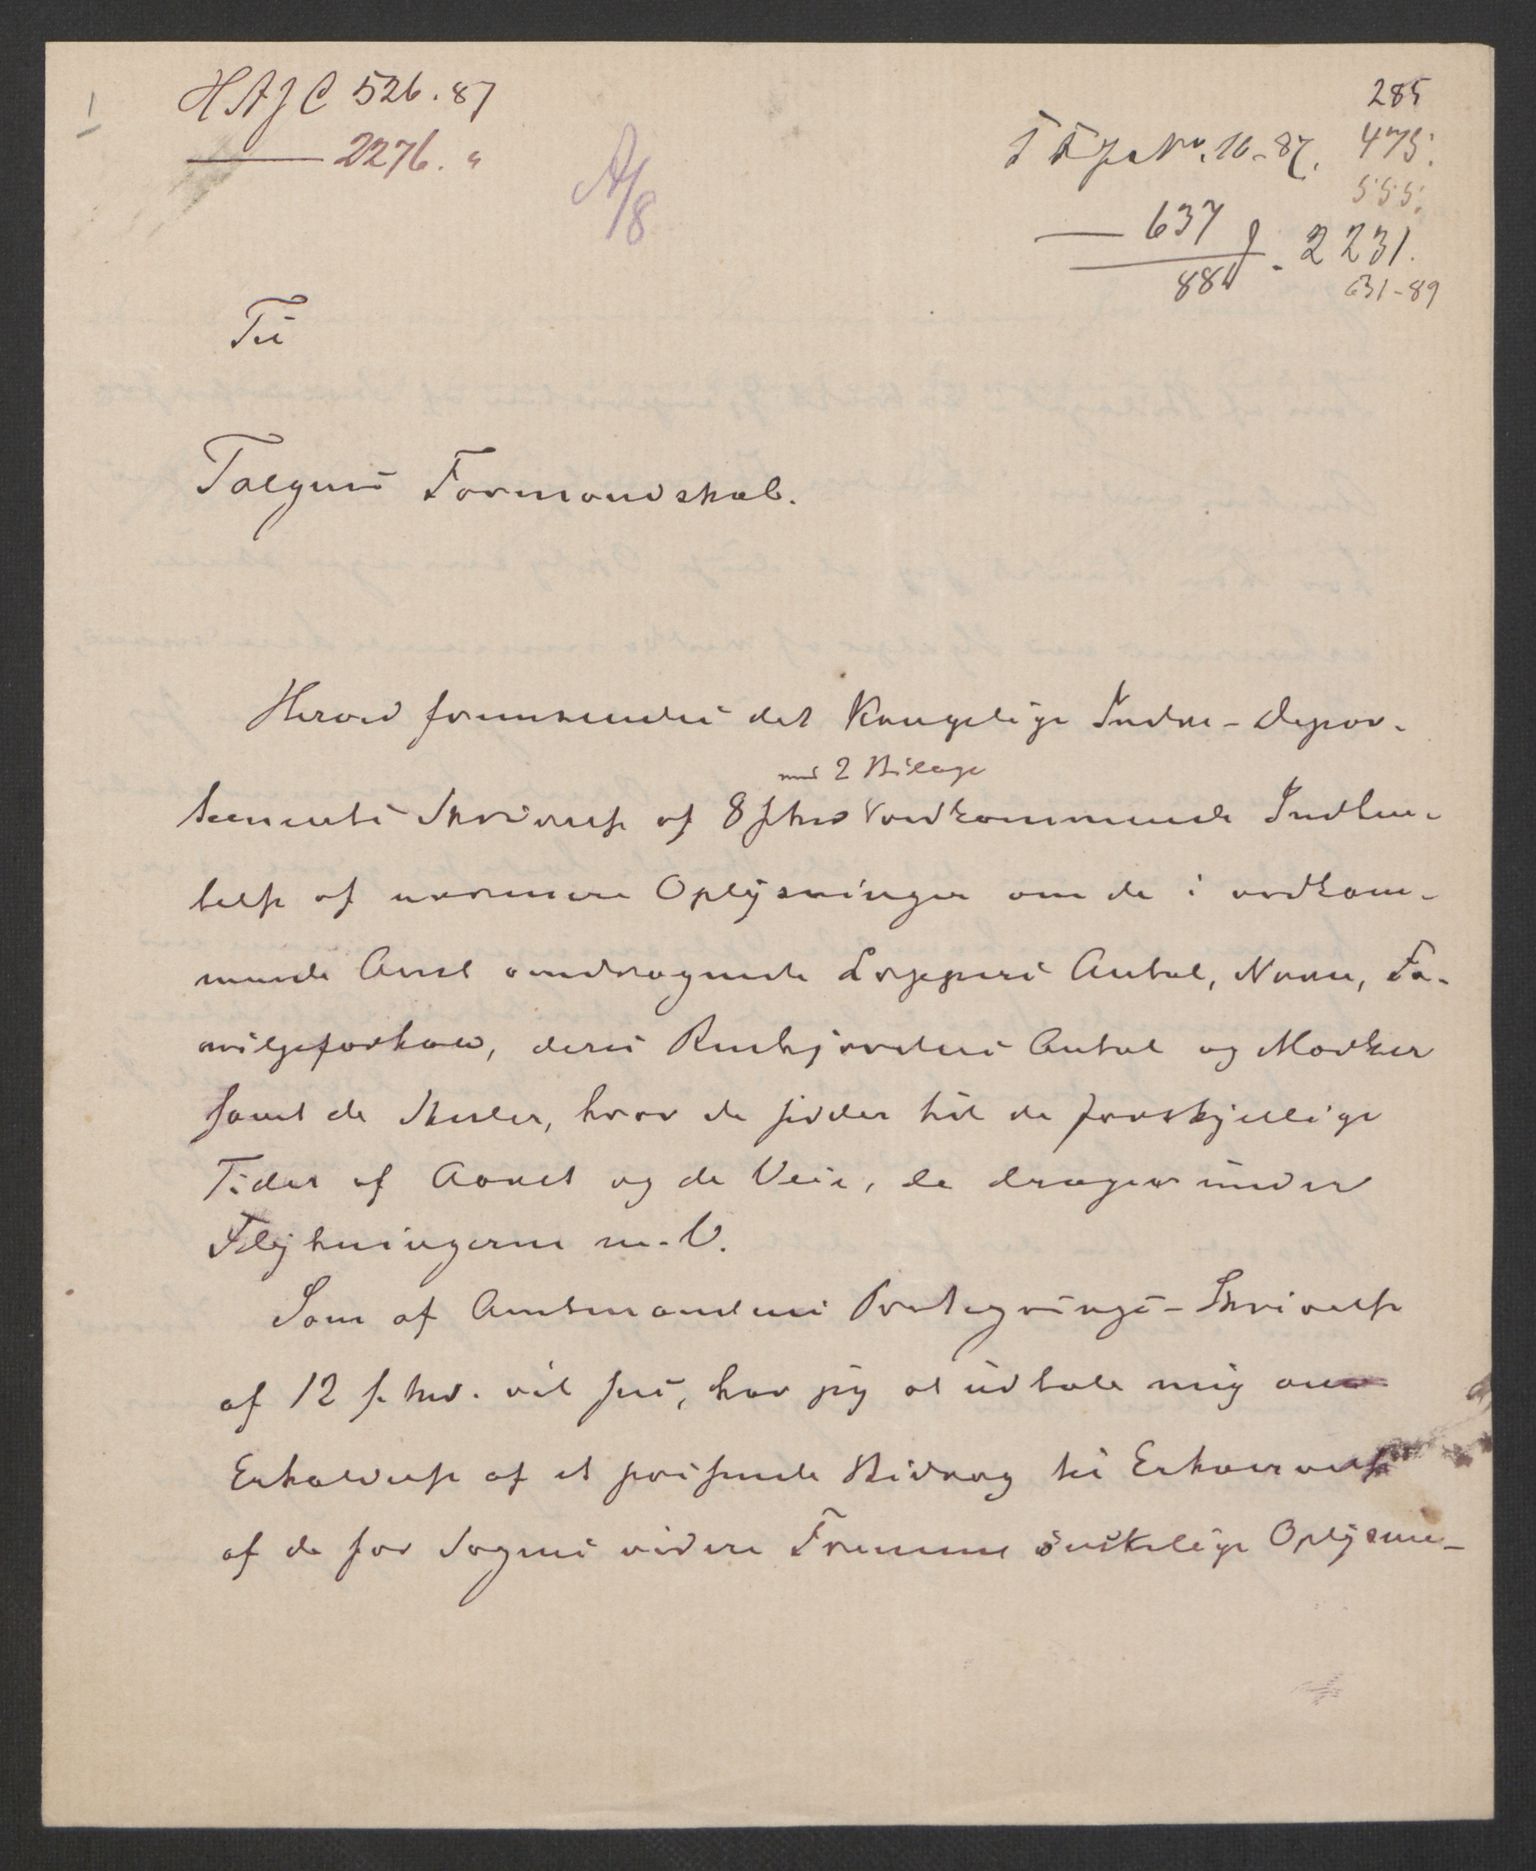 HAJC 526. 87
2276. "
A/8
285
F F J. No. 16-87. 475.
555.
637
2231.
88
631-89
Til
Tolgens Formandskab.
Herved fremsendes det Kongelige Indre-Depar-
med 2 Bilage
tements Skrivelse af 8 f. Md vedkommende Indhen-
telse af nærmere Oplysninger om de i vedkom-
mende Amt omdragende Lappers Antal, Navn, Fa-
miljeforhold, deres Renhjordens Antal og Mærker
samt de Steder, hvor de sidder til de forskjellige
Tider af Aaret og de Veie, de drager under
Flytningerne m. V.
Som af Amtmandens Paategnings-Skrivelse
af 12 f. Md. vil sees, har jeg at udtale mig om
Erholdelse af et passende Bidrag til Erhvervelse
af de for Sagens videre Fremme ønskelige Oplysnin-